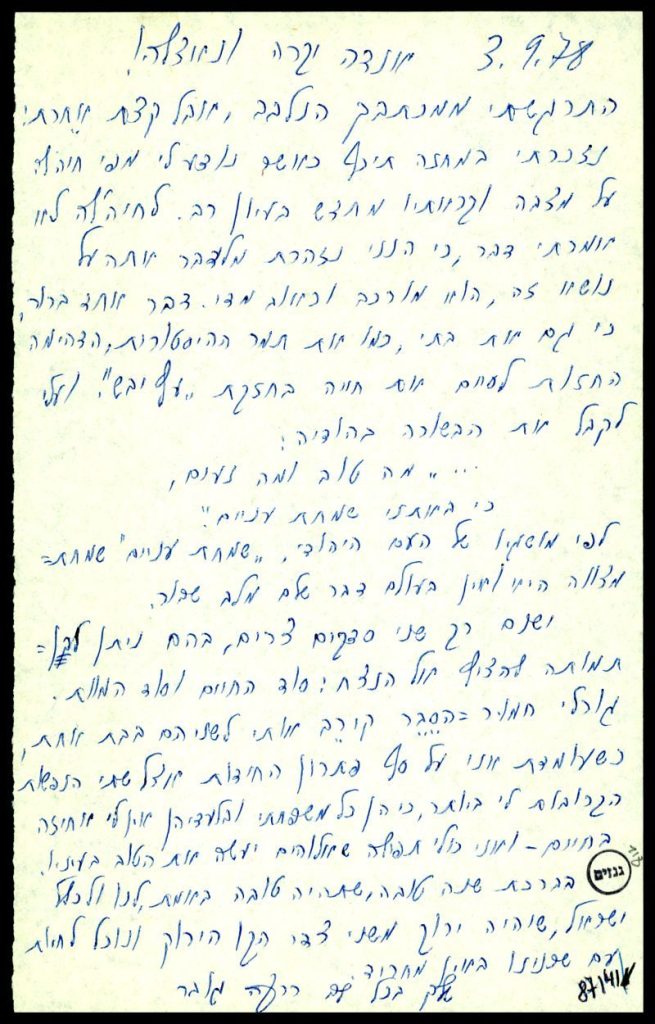 3.9.78 אנדה יקרה ונאצלה!
התרגשתי ממכתבך הנלבב, אבל קצת אחרת.
נזכרתי במחזה תיכף כאשר נודע לי מפי חיה'לה
על מצבה וקראתיו מחדש בעיון רב. לחיה'לה לא
אמרתי דבר, כי הנני נזהרת מלדבר אתה על
נושא זה, הוא מורכב וכאוב מדי. דבר אחד ברור,
כי גם את בתי, כמו את תמר ההיסטורית, הדהימה
החזות לעיים את חייה בחזקת "עץ יבש". ועלי
לקבל את הבשורה בהודיה:
..." מה טוב ומה נעים,
כי באתני שמחת עניים".
לפי מושגיו של העם היהודי, "שמחת עניים" שמחת=
מצווה היא ואין בעולם דבר שלם מלב שבור.
ישנם רק שני סדקים צרים, בהם ניתן לבן=
תמותה להציץ אל הנצח: סוד החיים וסוד המוות.
גורלי חמור=הסבר קירב אותי לשניהם בבת אחת,
כשעומדת אני על סף פתרון החידות אצל שתי הנפשות
הקרובות לי ביותר, כי הן כל משפחתי ובלעדיהן אין לי אחיזה
בחיים – ואני כולי תפילה שאלוהים יעשה את הטוב בעיניו.
בברכת שנה טובה, שתהיה טובה באמת, לנו ולכלל
ישראל, שיהיה ירוק משני צדי הקו הירוק ונוכל לחיות
עם שכנינו באין מחריד.
שלך בכל לב
גנזים
113
87/41/1